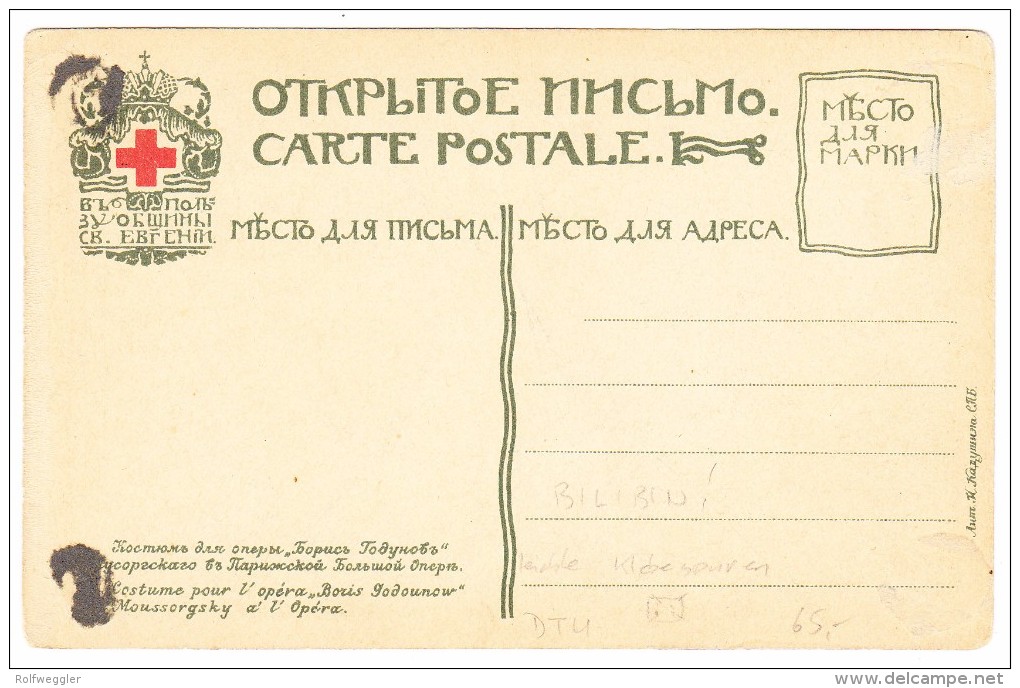 ОТКРЫТОЕ ПИСЬМО.
CARTE POSTALE.
МѢСТО
ДЛЯ
МАРКИ
ВЪ ПОЛЬ-
ЗУ ОБЩИНЫ
СВ. ЕВГЕНІИ.
МѢСТО ДЛЯ ПИСЬМА.
МѢСТО ДЛЯ АДРЕСА.
Костюмъ для оперы „Борисъ Годуновъ“
усоргскаго въ Парижской Большой Оперѣ.
Costume pour l'opéra „Boris Godounow“
Moussorgsky a' l' Opéra.
Лит. Н. Кадушина С.П.Б.
BILIBIN!
DTU
65,-
Rolfweggler
delcampe.net